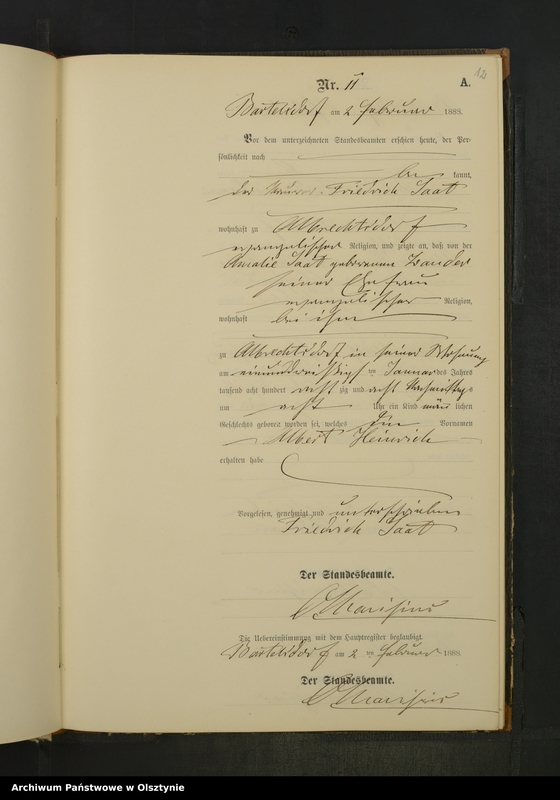 12
Nr. 11 A.
Bartelsdorf am 2 Februar 1888.
Vor dem unterzeichneten Standesbeamten erschien heute, der Per-
sönlichkeit nach
be kannt,
der Maurer Friedrich Saat
wohnhaft zu Albrechtsdorf
evangelischer Religion, und zeigte an, daß von der
Amalie Saat geborenen Zander
seiner Ehefrau
evangelischer Religion,
wohnhaft bei ihm
zu Albrechtsdorf in seiner Wohnung
am einunddreißigsten Januar des Jahres
tausend acht hundert acht zig und acht Nachmittags
um acht Uhr ein Kind männ lichen
Geschlechts geboren worden sei, welches Vornamen
Albert Heinrich
erhalten habe
Vorgelesen, genehmigt und unterschrieben
Friedrich Saat
Der Standesbeamte.
Die Uebereinstimmung mit dem Hauptregister beglaubigt.
Bartelsdorf am 2 ten Februar 1888.
Der Standesbeamte.
Archiwum Państwowe w Olsztynie